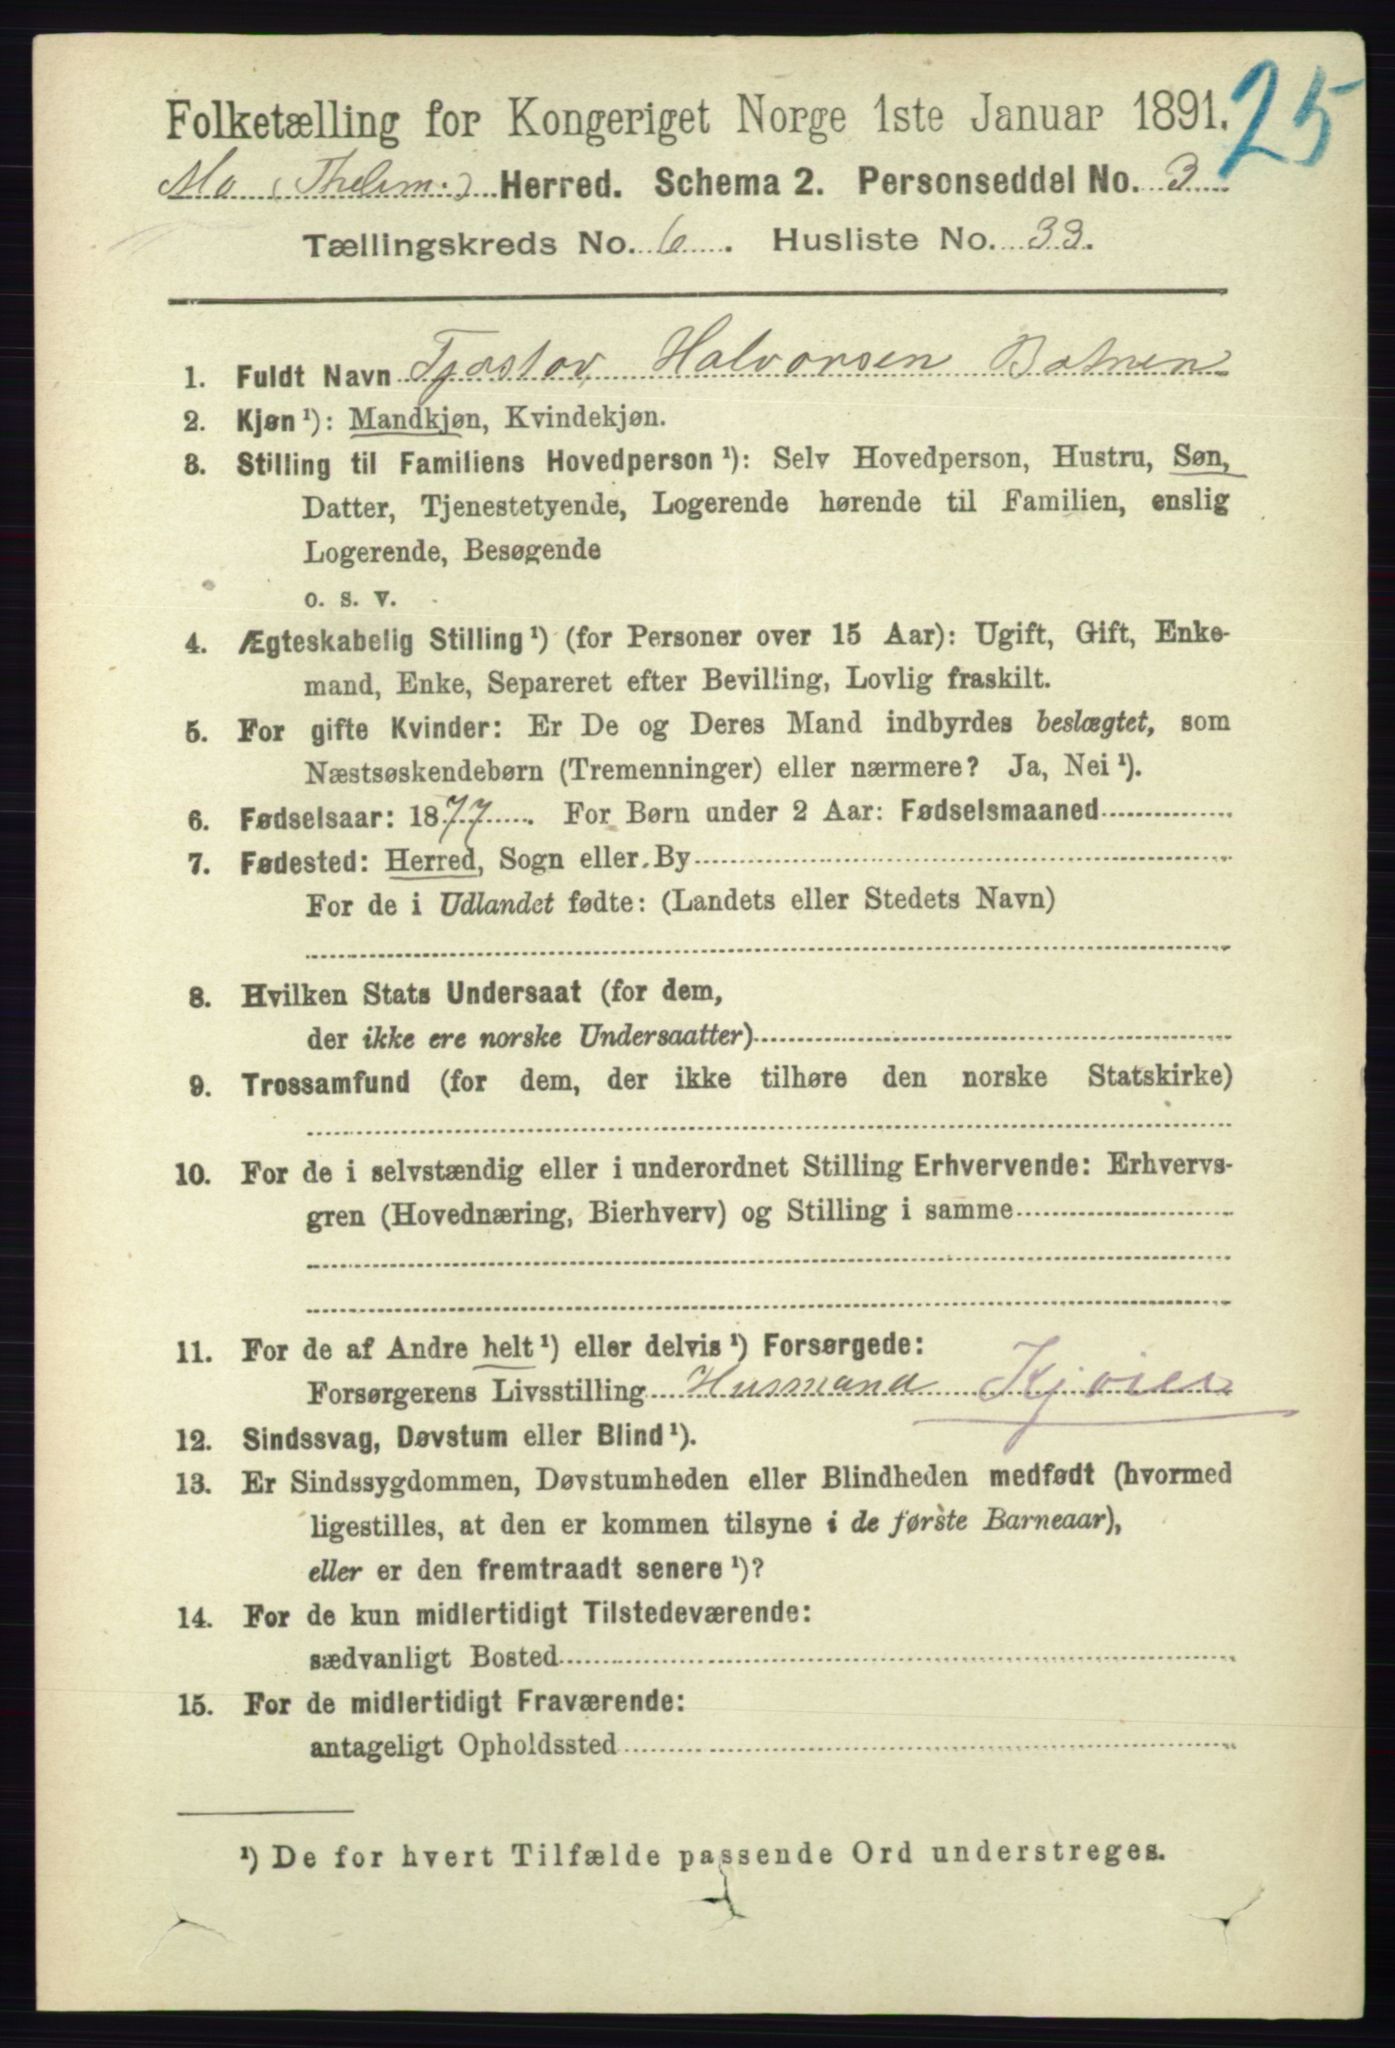 25
Folketælling for Kongeriget Norge 1ste Januar 1891.
Mo (Thelem.) Herred. Schema 2. Personseddel No. 3
Tællingskreds No. 6. Husliste No. 33.
1. Fuldt Navn Tjøstov Halvorsen Botnen
2. Kjøn¹): Mandkjøn, Kvindekjøn.
3. Stilling til Familiens Hovedperson¹): Selv Hovedperson, Hustru, Søn,
Datter, Tjenestetyende, Logerende hørende til Familien, enslig
Logerende, Besøgende
o. s. v.
4. Ægteskabelig Stilling¹) (for Personer over 15 Aar): Ugift, Gift, Enke-
mand, Enke, Separeret efter Bevilling, Lovlig fraskilt.
5. For gifte Kvinder: Er De og Deres Mand indbyrdes beslægtet, som
Næstsøskendebørn (Tremenninger) eller nærmere? Ja, Nei¹).
6. Fødselsaar: 1877. For Børn under 2 Aar: Fødselsmaaned
7. Fødested: Herred, Sogn eller By
For de i Udlandet fødte: (Landets eller Stedets Navn)
8. Hvilken Stats Undersaat (for dem,
der ikke ere norske Undersaatter)
9. Trossamfund (for dem, der ikke tilhøre den norske Statskirke)
10. For de i selvstændig eller i underordnet Stilling Erhvervende: Erhvervs-
gren (Hovednæring, Bierhverv) og Stilling i samme
11. For de af Andre helt¹) eller delvis¹) Forsørgede:
Forsørgerens Livsstilling Husmand
12. Sindssvag, Døvstum eller Blind¹).
13. Er Sindssygdommen, Døvstumheden eller Blindheden medfødt (hvormed
ligestilles, at den er kommen tilsyne i de første Barneaar),
eller er den fremtraadt senere¹)?
14. For de kun midlertidigt Tilstedeværende:
sædvanligt Bosted
15. For de midlertidigt Fraværende:
antageligt Opholdssted
¹) De for hvert Tilfælde passende Ord understreges.